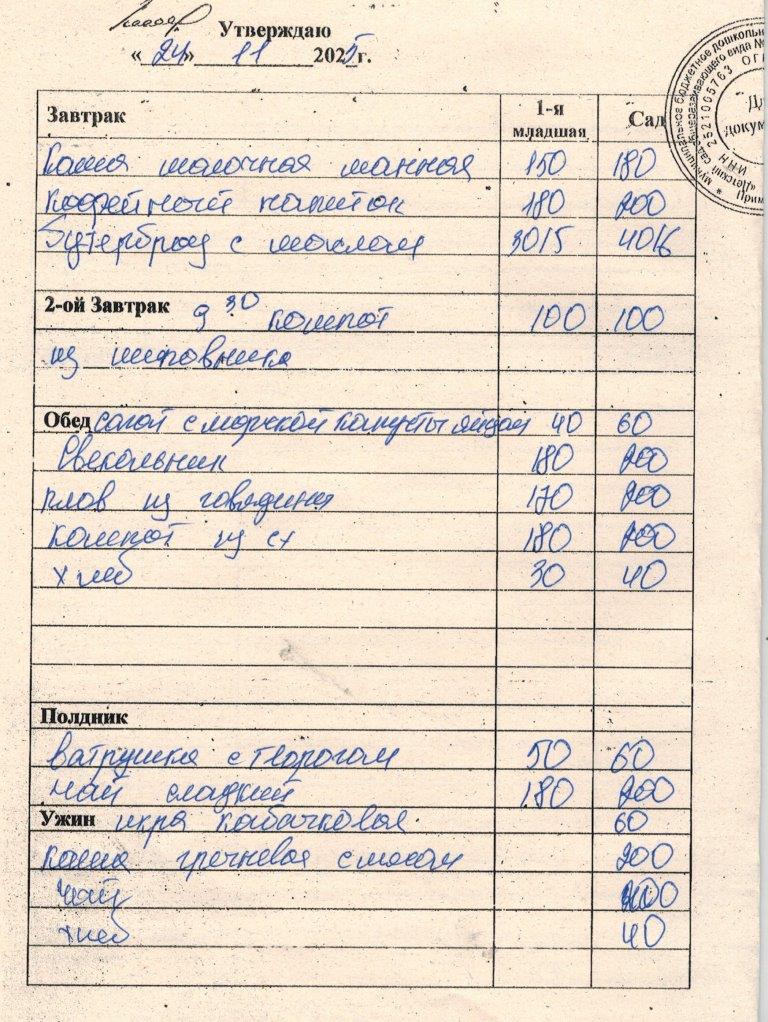 Утверждаю
«24» 11 2025г.
Завтрак 1-я младшая Сад
Каша молочная манная 150 180
Кофейный напиток 180 200
Бутерброд с маслом 30/5 40/6
2-ой Завтрак 9 30 компот 100 100
из шиповника
Обед салат с морской капусты яйцом 40 60
Свекольник 180 200
плов из говядины 170 200
Компот из сх 180 200
хлеб 30 40
Полдник
ватрушка с творогом 50 60
чай сладкий 180 200
Ужин икра кабачковая 60
каша гречневая с мясом 200
Чай 200
хлеб 40
муниципальное бюджетное дошкольн
общеразвивающего вида №
"Детский сад
ИНН 2521005763 ОГ
Прим
Дл
докум